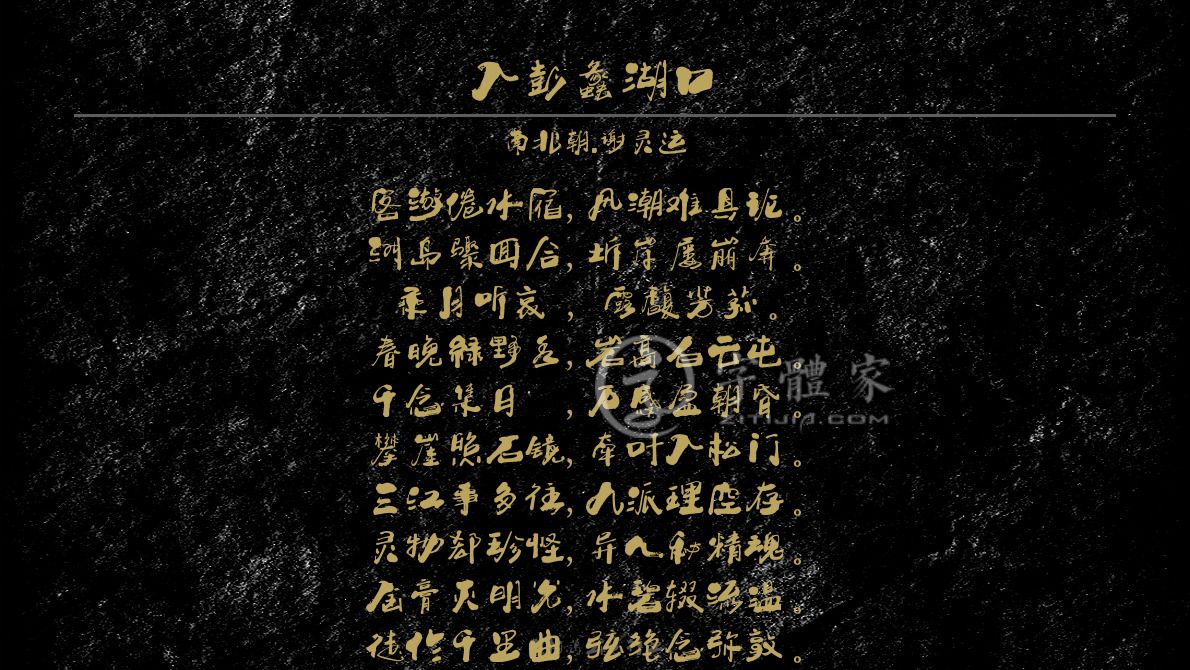 入彭蠡湖口
南北朝.谢灵运
客游倦水宿,风潮难具论。
洲岛骤回合,圻岸屡崩奔。
乘月听哀 , 露馥芳荪。
春晚绿野秀,岩高白云屯。
千念集日 ,万感盈朝昏。
攀崖照石镜,牵叶入松门。
三江事多往,九派理空存。
灵物郄珍怪,异人秘精魂。
金膏灭明光,水碧辍流温。
徒作千里曲,弦绝念弥敦。
字體家
ZITIJIA.COM